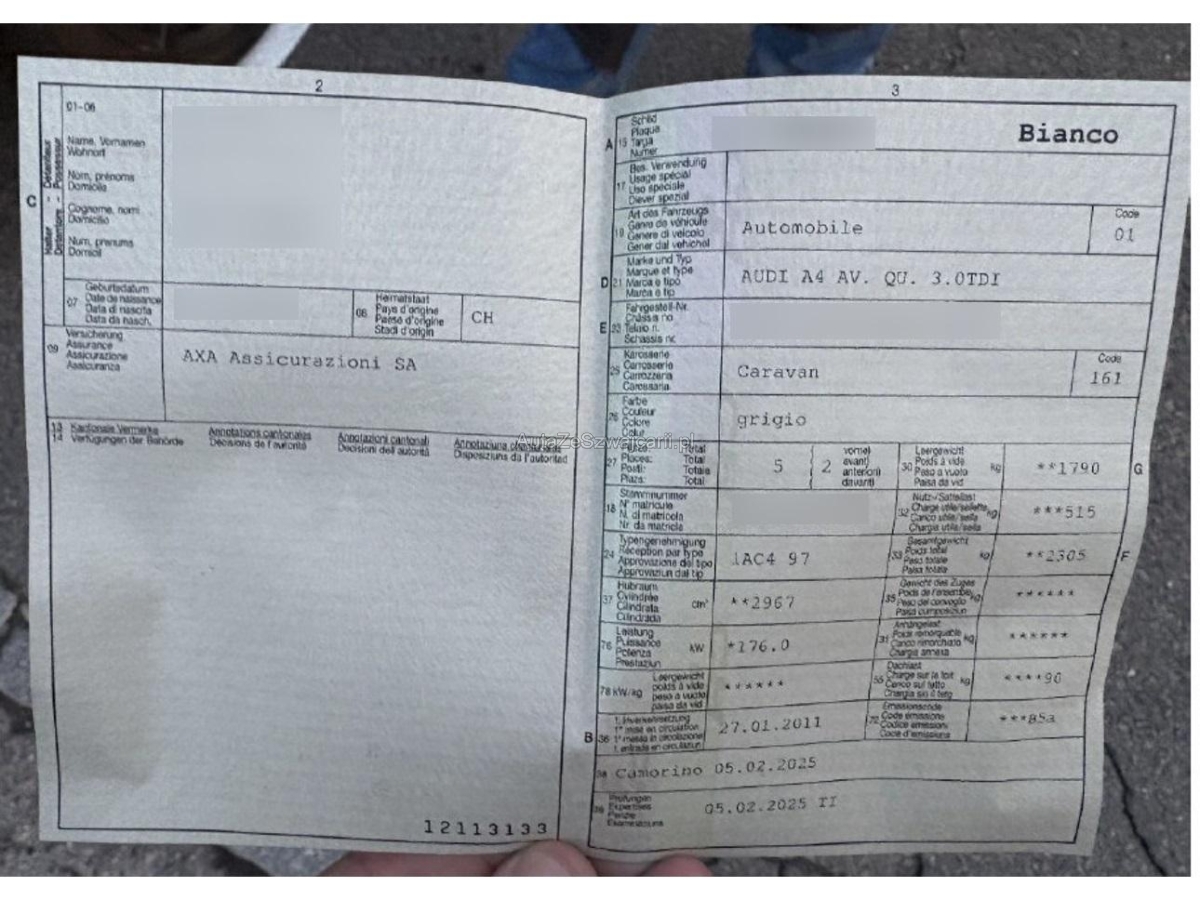 2
01-06
Name, Vornamen
Wohnort
Nom, prénoms
Domicile
Cognome, nomi
Domicilio
Num, prenums
Domicil
C
07
Geburtsdatum
Date de naissance
Data di nascita
Data da nasch.
08
Heimatstaat
Pays d'origine
Paese d'origine
Stadi d'origin
CH
09
Versicherung
Assurance
Assicurazione
Assicuranza
AXA Assicurazioni SA
13 Kantonale Vermerke
14 Verfügungen der Behörde
Annotations cantonales
Décisions de l'autorité
Annotazioni cantonali
Decisioni dell'autorità
Disposiziuns da l'autoritad
12113133
3
A 15
Schild
Plaque
Targa
Numer
Bianco
17
Bes. Verwendung
Usage spécial
Uso speciale
Diever spezial
19
Art des Fahrzeugs
Genre de véhicule
Genere di veicolo
Gener dal vehichel
Automobile
Code
01
D 21
Marke und Typ
Marque et type
Marca e tipo
Marca e tip
AUDI A4 AV. QU. 3.0TDI
E 23
Fahrgestell-Nr.
Châssis no
Telaio n.
Schassis nr.
25
Karosserie
Carrosserie
Carrozzeria
Carossaria
Caravan
Code
161
26
Farbe
Couleur
Colore
Colur
grigio
AutaZeSzwajcarii.pl
27
Total
Places: Total
Posti: Totale
Plazs: Total
5
2
vorne)
avant)
anteriori)
davant)
30
Leergewicht
Poids à vide
Peso a vuoto
Paisa da vid
kg
**1790
G
18
Stammnummer
N° matricule
N. di matricola
Nr. da matricla
32
Nutz-/Sattellast
Charge utile/sellette
Carico utile/sella
Chargia utila/sella
kg
***515
24
Typengenehmigung
Réception par type
Approvazione del tipo
Approvaziun dal tip
1AC4 97
33
Gesamtgewicht
Poids total
Peso totale
Paisa totala
kg
**2305
F
37
Hubraum
Cylindrée
Cilindrata
Cilindrada
cm³
**2967
35
Gewicht des Zuges
Poids de l'ensemble
Peso del convoglio
Paisa cumposiziun
kg
******
76
Leistung
Puissance
Potenza
Prestaziun
kW
*176.0
31
Anhängelast
Poids remorquable
Carico rimorchiato
Chargia annexa
kg
******
78 kW/kg
Leergewicht
poids à vide
peso a vuoto
paisa da vid
******
55
Dachlast
Charge sur le toit
Carico sul tetto
Chargia sin il tetg
kg
****90
B 36
1. Inverkehrsetzung
1re mise en circulation
1a messa in circolazione
1. entrada en circulaziun
27.01.2011
72
Emissionscode
Code émissions
Codice emissioni
Code d'emissiuns
***B5a
Camorino 05.02.2025
39
Prüfungen
Expertises
Perizie
Examinaziuns
05.02.2025 TI